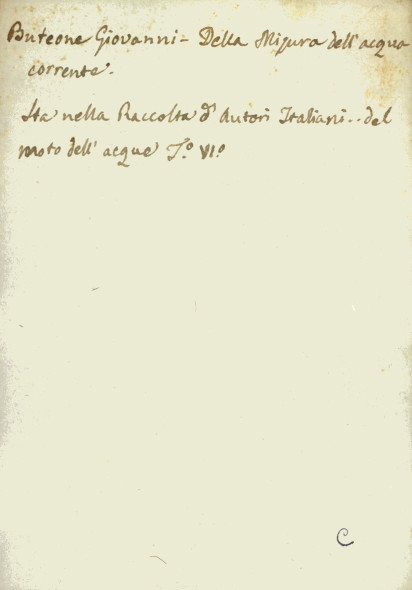 Buteone Giovanni - Della Misura dell'acqua
corrente.
Sta nella Raccolta d' Autori Italiani.. del
moto dell' acque T.º VI.º
C